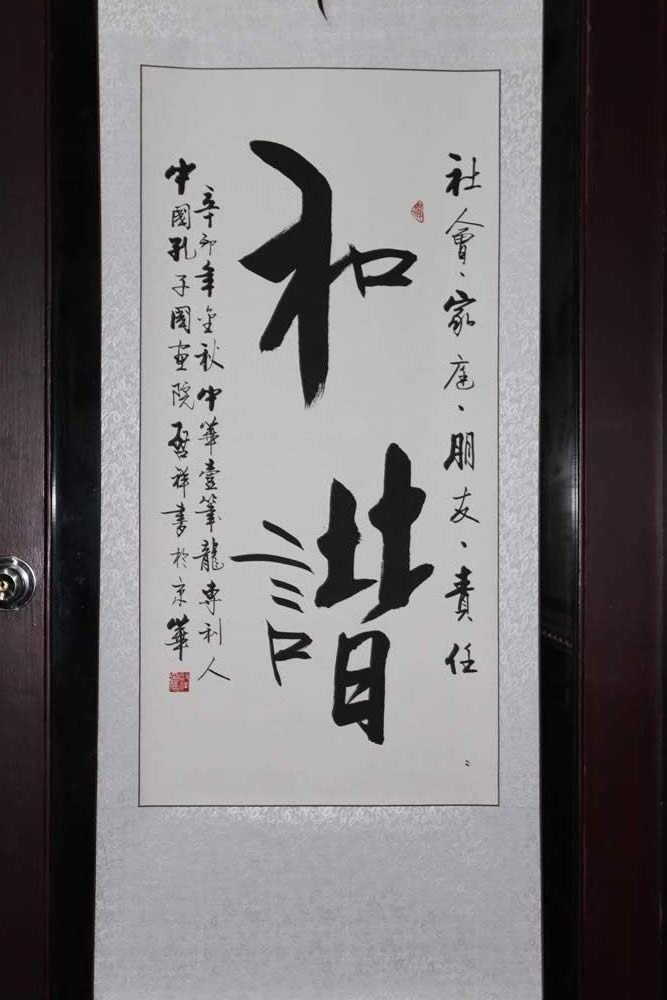 社會、家庭、朋友、責任
和諧
辛卯年金秋中華壹筆龍專利人
中國孔子國画院啓祥書於京華